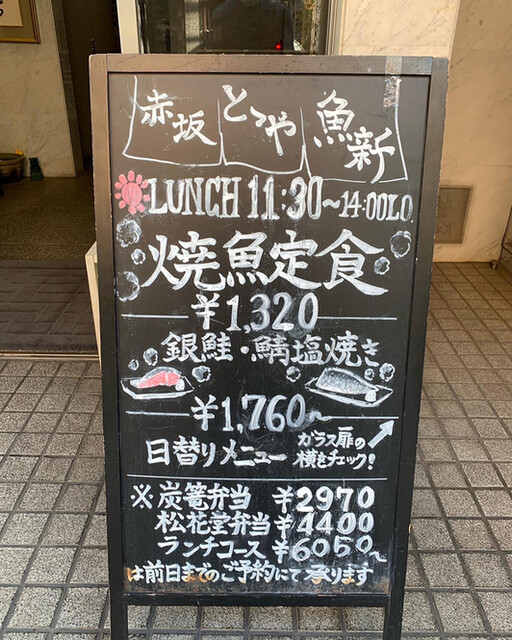 赤坂 とゝや 魚新
LUNCH 11:30~14:00LO
焼魚定食
¥1,320
銀鮭・鯖塩焼き
¥1,760~
日替りメニュー ガラス扉の
横をチェック!
※炭篭弁当 ¥2970
松花堂弁当 ¥4400
ランチコース ¥6050~
は前日までのご予約にて承ります